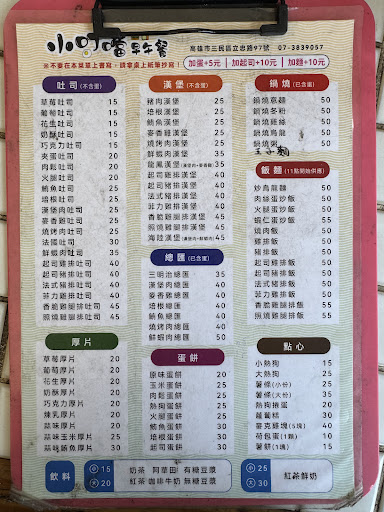 小叮噹早午餐
高雄市三民區立忠路97號 07-3839057
※不要在本菜單上書寫，請拿桌上紙筆抄寫！
加蛋+5元 加起司+10元 加麵+10元
吐司(不含蛋)
草莓吐司 15
葡萄吐司 15
花生吐司 15
奶酥吐司 15
巧克力吐司 15
夾蛋吐司 20
肉鬆吐司 20
火腿吐司 20
鮪魚吐司 25
培根吐司 25
漢堡肉吐司 25
麥香雞吐司 25
燒烤肉吐司 25
法國吐司 30
鮮蝦肉吐司 30
起司雞排吐司 40
起司豬排吐司 40
法式豬排吐司 40
菲力雞排吐司 40
香脆雞腿排吐司 45
照燒雞腿排吐司 45
厚片
草莓厚片 20
葡萄厚片 20
花生厚片 20
奶酥厚片 20
巧克力厚片 20
煉乳厚片 20
蒜味厚片 20
蒜味玉米厚片 25
蒜味鮪魚厚片 30
漢堡(不含蛋)
豬肉漢堡 25
培根漢堡 25
鮪魚漢堡 25
麥香雞漢堡 25
燒烤肉漢堡 25
鮮蝦肉漢堡 30
龍鳳漢堡 35
起司雞排漢堡 40
起司豬排漢堡 40
法式豬排漢堡 40
菲力雞排漢堡 40
香脆雞腿排漢堡 45
照燒雞腿排漢堡 45
海陸漢堡 45
總匯(已含蛋)
三明治總匯 35
漢堡肉總匯 40
麥香雞總匯 40
培根總匯 40
鮪魚總匯 40
燒烤肉總匯 40
鮮蝦肉總匯 40
蛋餅
原味蛋餅 20
玉米蛋餅 25
肉鬆蛋餅 25
熱狗蛋餅 25
火腿蛋餅 25
鮪魚蛋餅 30
培根蛋餅 30
起司蛋餅 30
鍋燒(已含蛋)
鍋燒意麵 50
鍋燒冬粉 50
鍋燒雞絲 50
鍋燒烏龍 50
鍋燒粥 50
飯麵(11點開始供應)
炒烏龍麵 50
肉絲蛋炒飯 50
火腿蛋炒飯 50
蝦仁蛋炒飯 50
燒肉飯 50
雞排飯 50
豬排飯 50
起司雞排飯 50
起司豬排飯 50
法式豬排飯 50
菲力雞排飯 50
香脆雞腿排飯 55
照燒雞腿排飯 55
點心
小熱狗 15
大熱狗 25
薯條(小份) 25
薯條(大份) 35
熱狗捲蛋 20
蘿蔔糕 30
麥克雞塊(5塊) 40
荷包蛋(1顆) 10
薯餅(1塊) 15
飲料
小 15
大 20
奶茶 阿華田 有糖豆漿
紅茶 咖啡牛奶 無糖豆漿
小 25
大 30
紅茶鮮奶